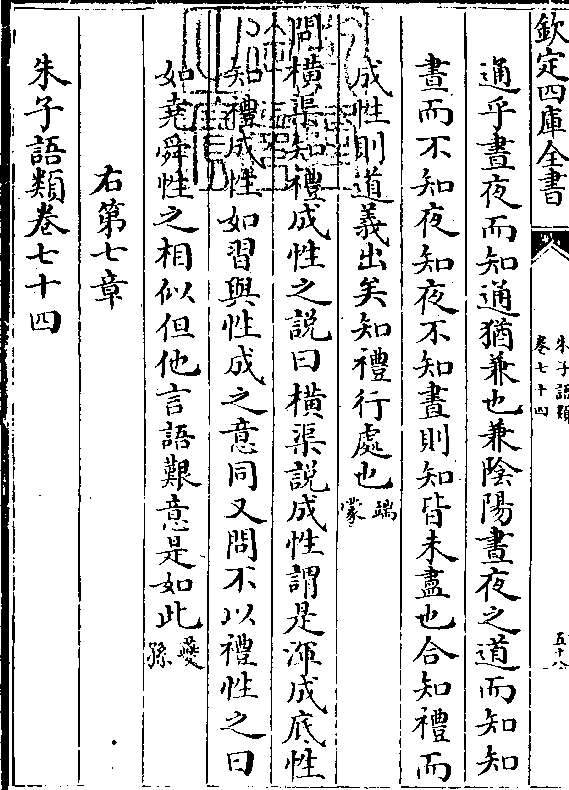 欽定四庫全書
朱子語類
卷七十四
通乎晝夜而知通猶兼也兼陰陽晝夜之道而知知
晝而不知夜知夜不知晝則知皆未盡也合知禮而
成性則道義出矣知禮行處也端蒙
問橫渠知禮成性之說曰橫渠說成性謂是渾成底性
知禮成性如習與性成之意同又問不以禮性之曰
如堯舜性之相似但他言語艱意是如此㬊孫
右第七章
朱子語類卷七十四